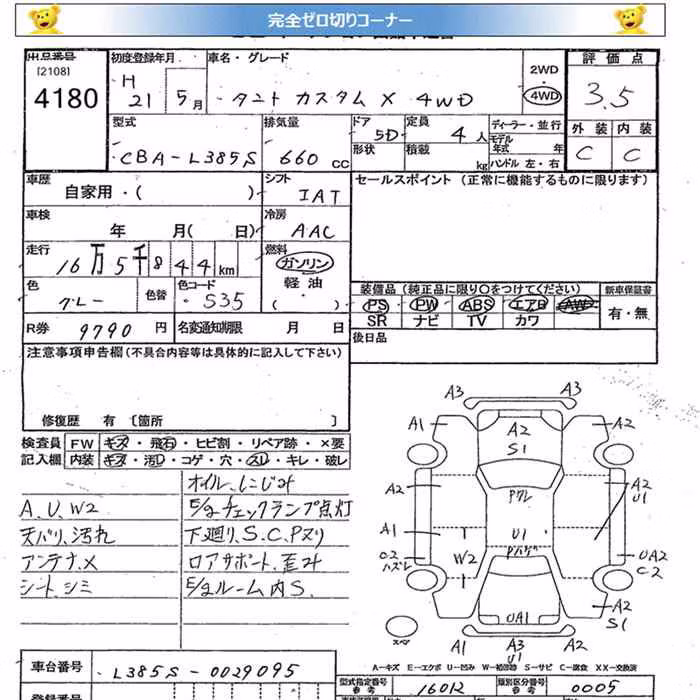 完全ゼロ切りコーナー
出品番号
[2108]
4180
初度登録年月
H
21 5月
車名・グレード
タント カスタム X 4WD
2WD
4WD
評価点
3.5
型式
CBA-L385S
排気量
660 CC
ドア
5D
形状
定員
4人
積載
kg
ディーラー・並行
モデル
年式 年
ハンドル 左・右
外装 内装
C C
車歴
自家用・( )
シフト
IAT
セールスポイント (正常に機能するものに限ります)
車検
年 月( 日)
冷房
AAC
走行
16万5千844km
燃料
ガソリン
軽油
( )
色
グレー
色替
色コード
S35
装備品 (純正品に限り○をつけてください)
PS PW ABS エアB AW
SR ナビ TV カワ
新車保証書
有・無
R券 9790円
名変通知期限 月 日
後日品
注意事項申告欄(不具合内容等は具体的に記入して下さい)
修復歴 有 [箇所 ]
検査員
記入欄
FW キズ・飛石・ヒビ割・リペア跡・×要
内装 キズ・汚レ・コゲ・穴・スレ・キレ・破レ
オイルにじみ
A、U、W2
E/gチェックランプ点灯
天バリ、汚れ
下廻り、S、C、Pヌリ
アンテナ、X
ロアサポート、歪み
シート、シミ
E/gルーム内S、
A3 A3
A1 A2 S1 A2
A2 Pクレ A2 U1
A1 U1
C2 ハズレ W2 UA2 C2
UA1 A2 S1
A1 A3 U1 A2
A－キズ E－エクボ U－凹み W－補修跡 S－サビ C－腐食 XX－交換済
車台番号
L385S-0029095
型式指定番号
参考
16012
類別区分番号
参考
0005
登録番号